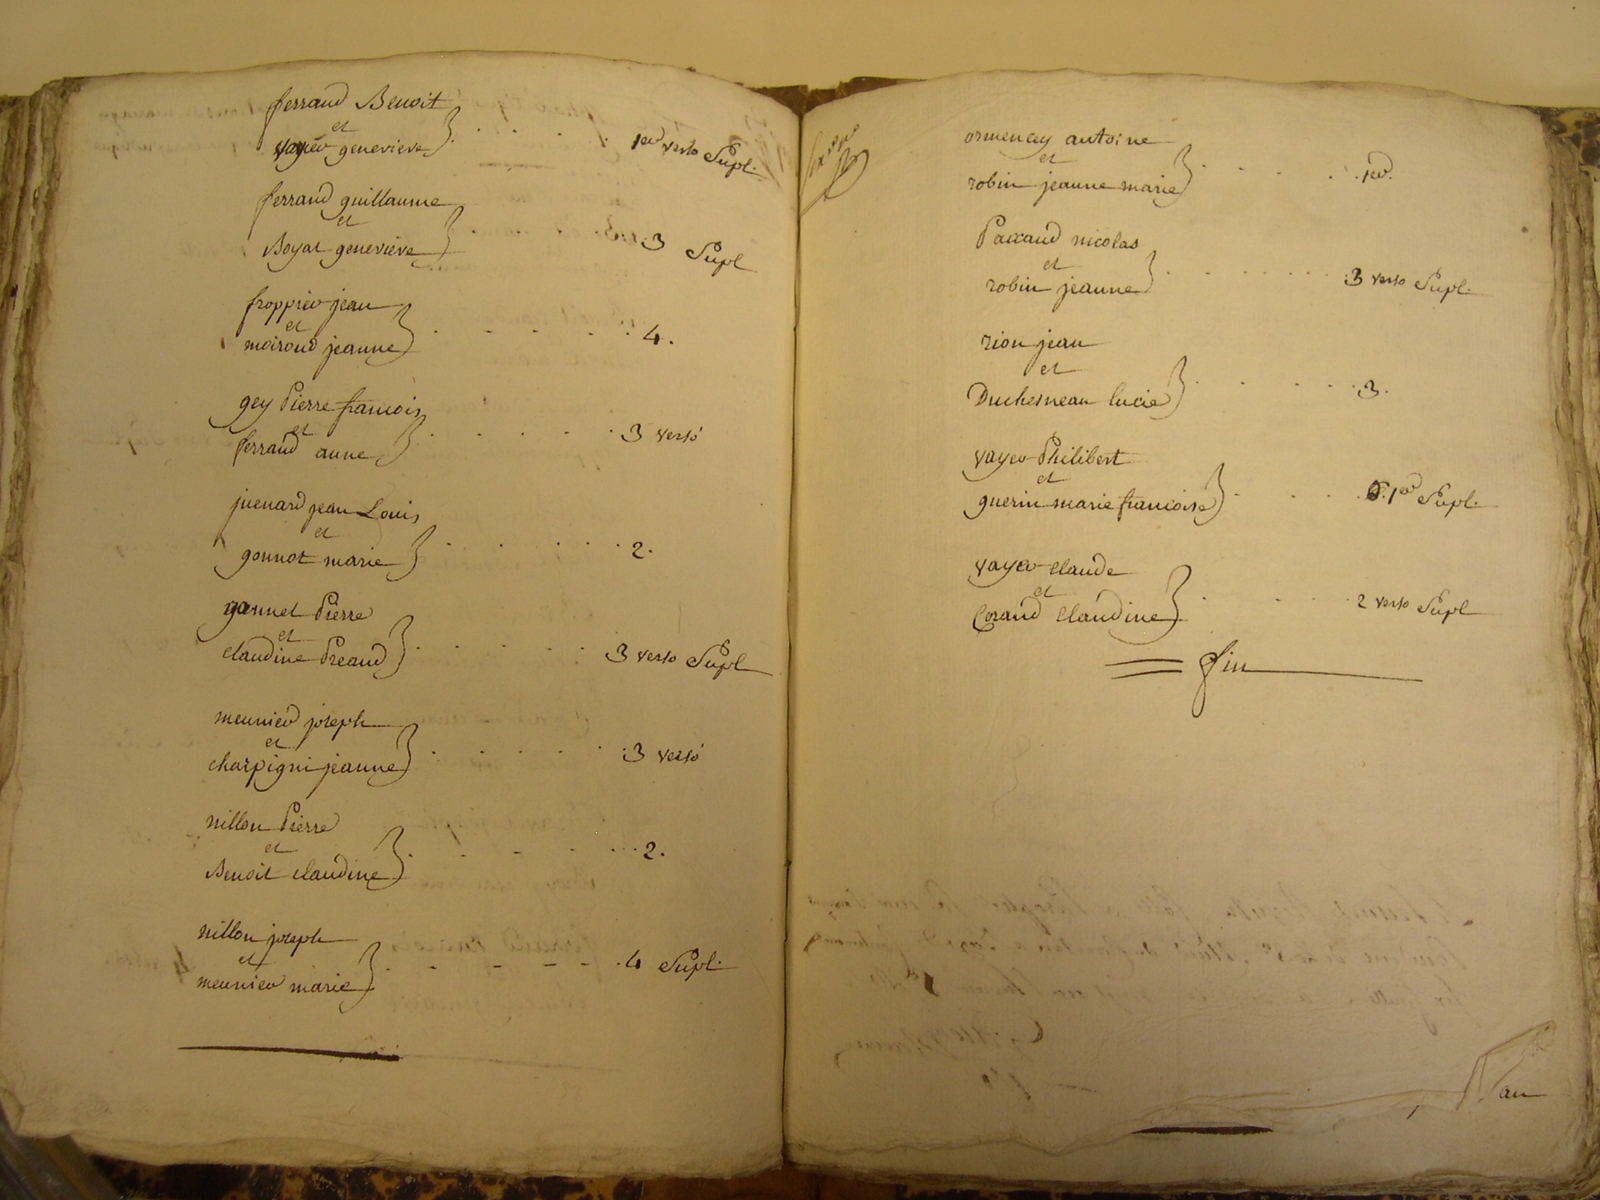 ferrand Benoit
et
vayer genevieve
1er verso Supl.
ferrand guillaume
et
Boyat genevieve
3 Supl
froppier jean
et
moiroud jeanne
4.
gey Pierre francois
et
ferrand anne
3 verso
juenard jean Louis
et
gonnot marie
2.
gonnet Pierre
et
claudine Preaud
3 verso Supl
meunier joseph
et
charpigni jeanne
3 verso
nillon Pierre
et
Benoit claudine
2.
nillon joseph
et
meunier marie
4 Supl.
ormencey antoine
et
robin jeanne marie
1er.
Paccaud nicolas
et
robin jeanne
3 verso Supl.
rion jean
et
Duchesneau lucie
3.
vayer Philibert
et
guerin marie francoise
1er Supl.
vayer claude
et
Corand claudine
2 verso Supl
fin
an